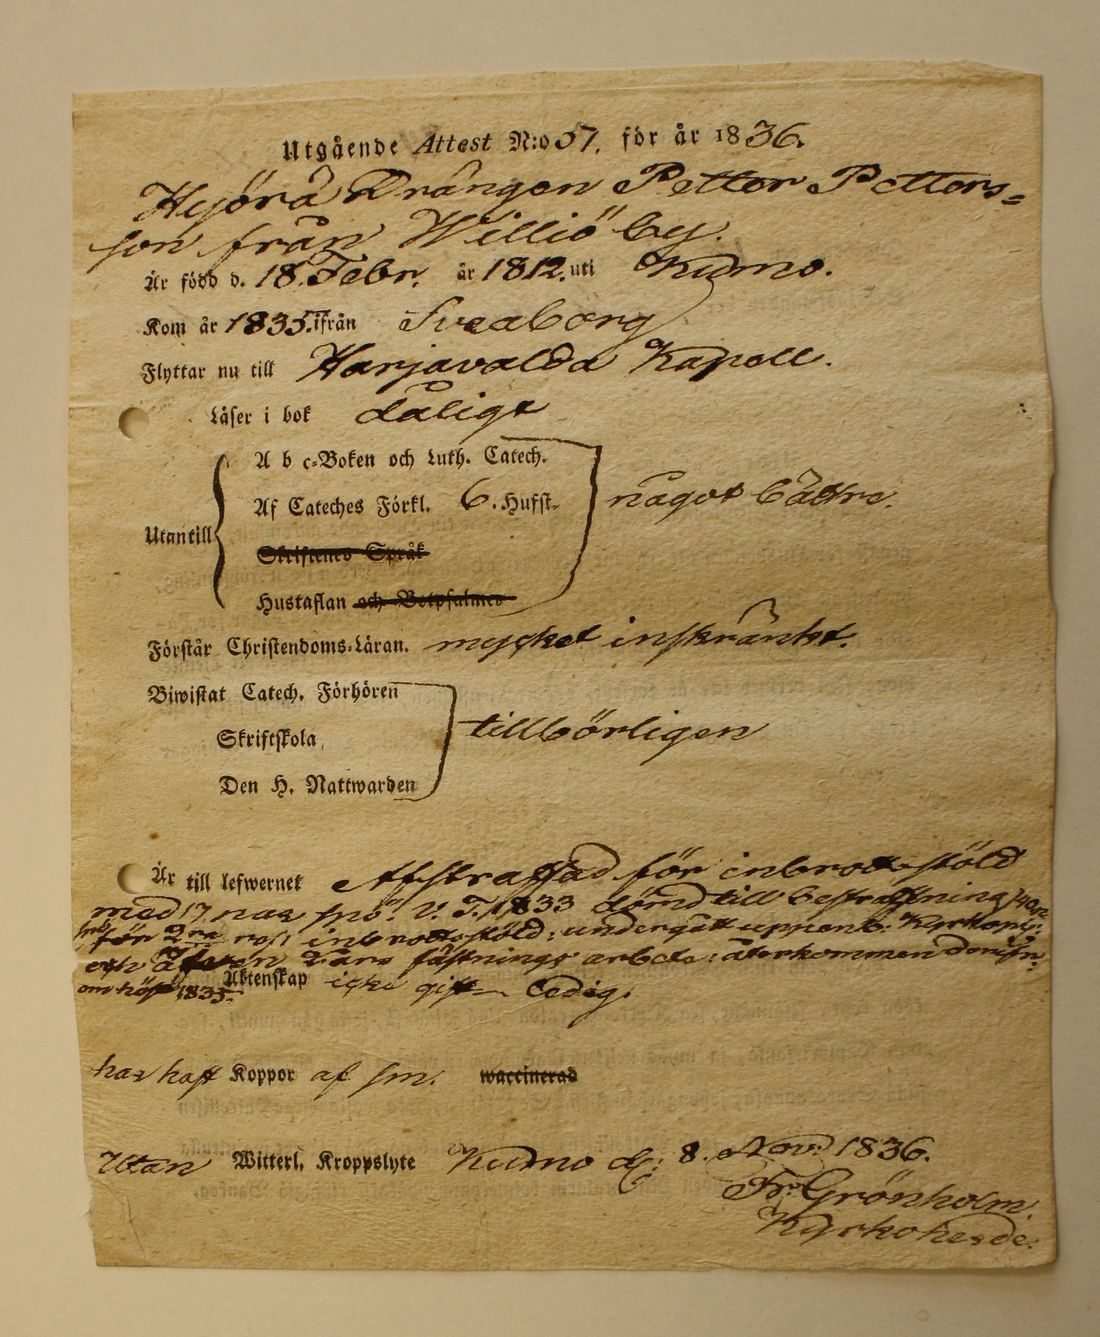 Utgående Attest N:o 57. för år 1836.
Hyöra Drängen Petter Petters=
son från Williö by.
Är född d. 18. Febr. år 1812. uti Kumo.
Kom år 1835. ifrån Sveaborg
Flyttar nu till Harjavalda Kapell.
Läser i bok dåligt
A b c-Boken och Luth. Catech.
Af Cateches Förkl. 6. Hufst. något bättre.
Utantill
Skriftenes Språk
Hustaflan och Botpsalmer
Förstår Christendoms-Läran. mycket inskränkt.
Biwistat Catech. Förhören
Skriftskola, tillbörligen
Den H. Nattwarden
Är till lefwernet Afstraffad för inbrott stöld
med 17 spö. V. T. 1833 dömd till bestraffning 40 pr
spö för 2ra inbrottsstöld: undergått uppenb. Kyrkopl:
och års fästnings arbete: återkommen
om höst 1835. Äktenskap icke gift ledig.
har haft Koppor af sm. waccinerad
Utan Witterl. Kroppslyte Kumo d: 8. Nov: 1836.
Fr: Grönholm.
Kyrkoherde.